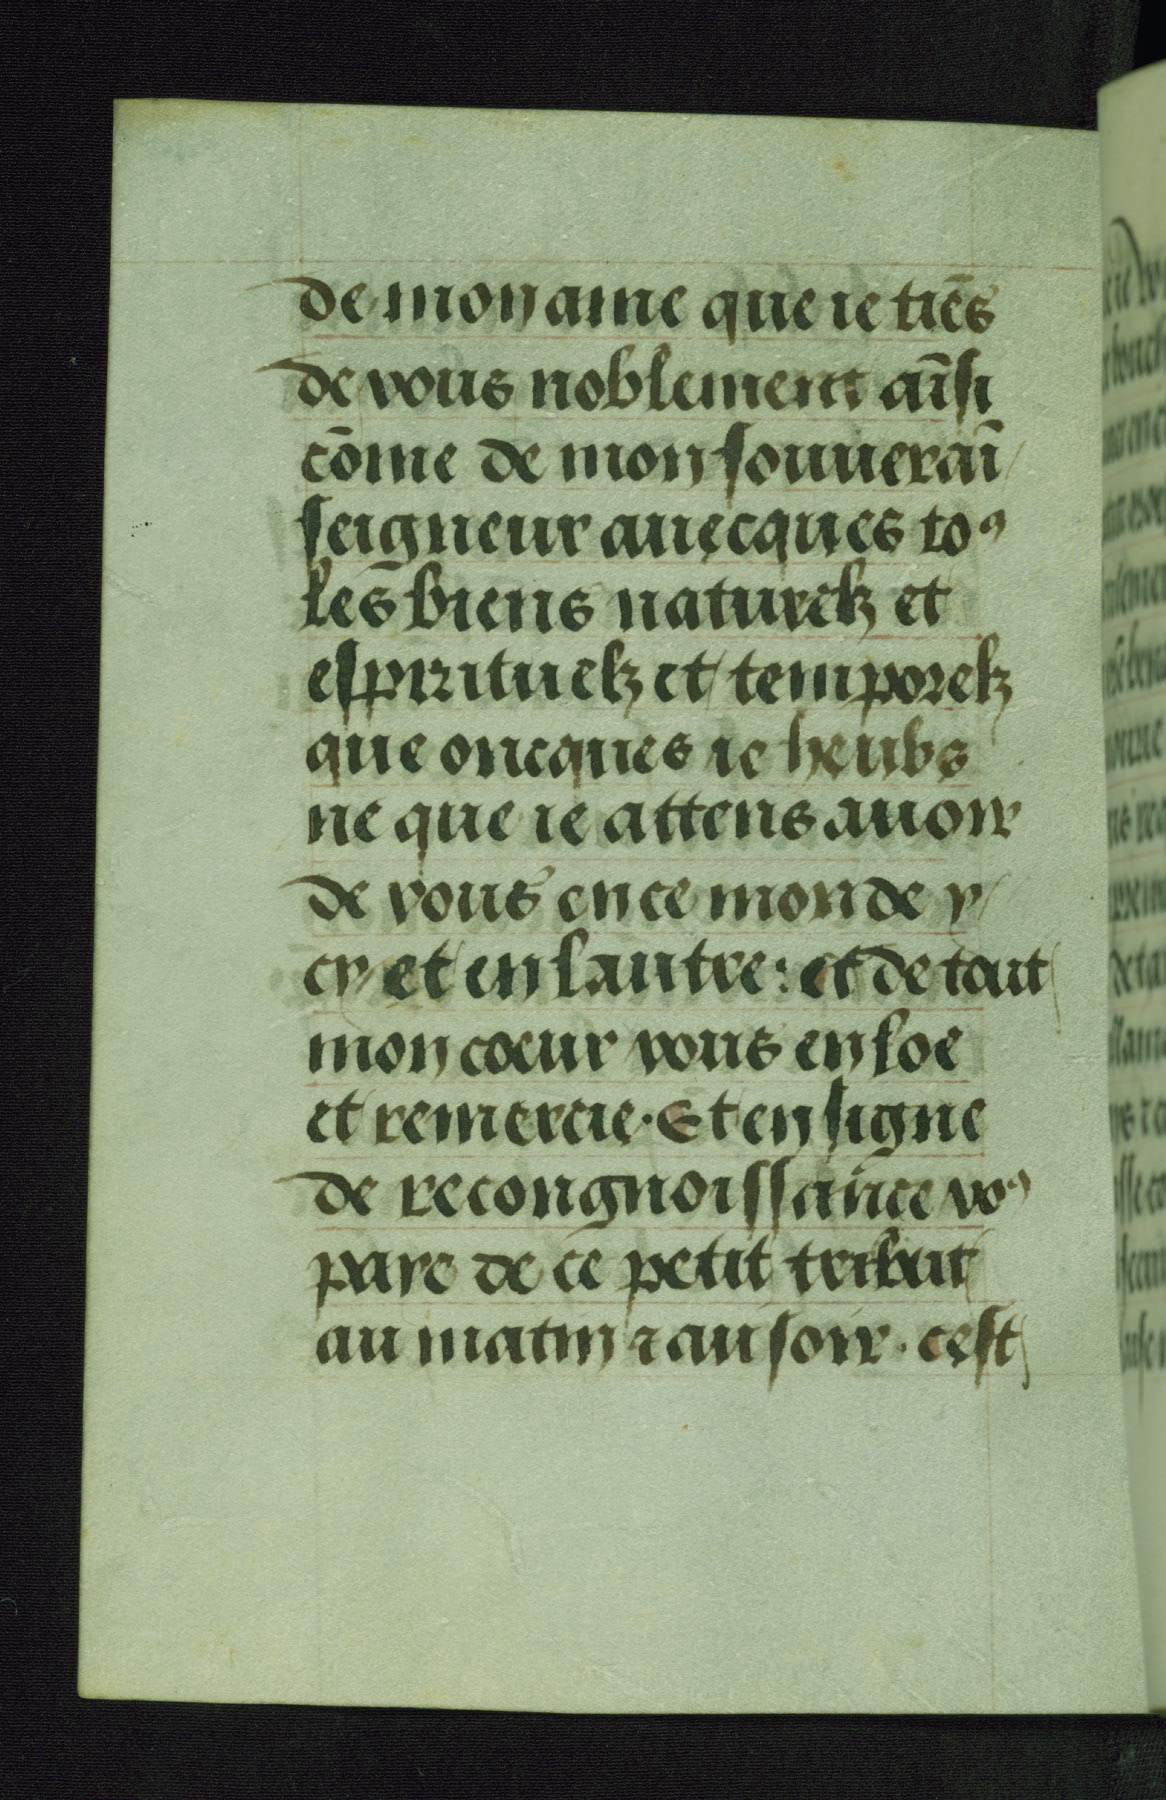 de mon ame que ie tiēs
de vous noblement aīsi
cōme de mon souueraī
seigneur auecques toꝰ
les biens naturelz et
espirituelz et temporelz
que oncques ie heubs
ne que ie attens auoir
de vous en ce monde y
cy et en lautre: et de tout
mon cœur vous en loe
et remercie. Et en signe
de recongnoissance voꝰ
paye de ce petit tribut
au matin ⁊ au soir. cest